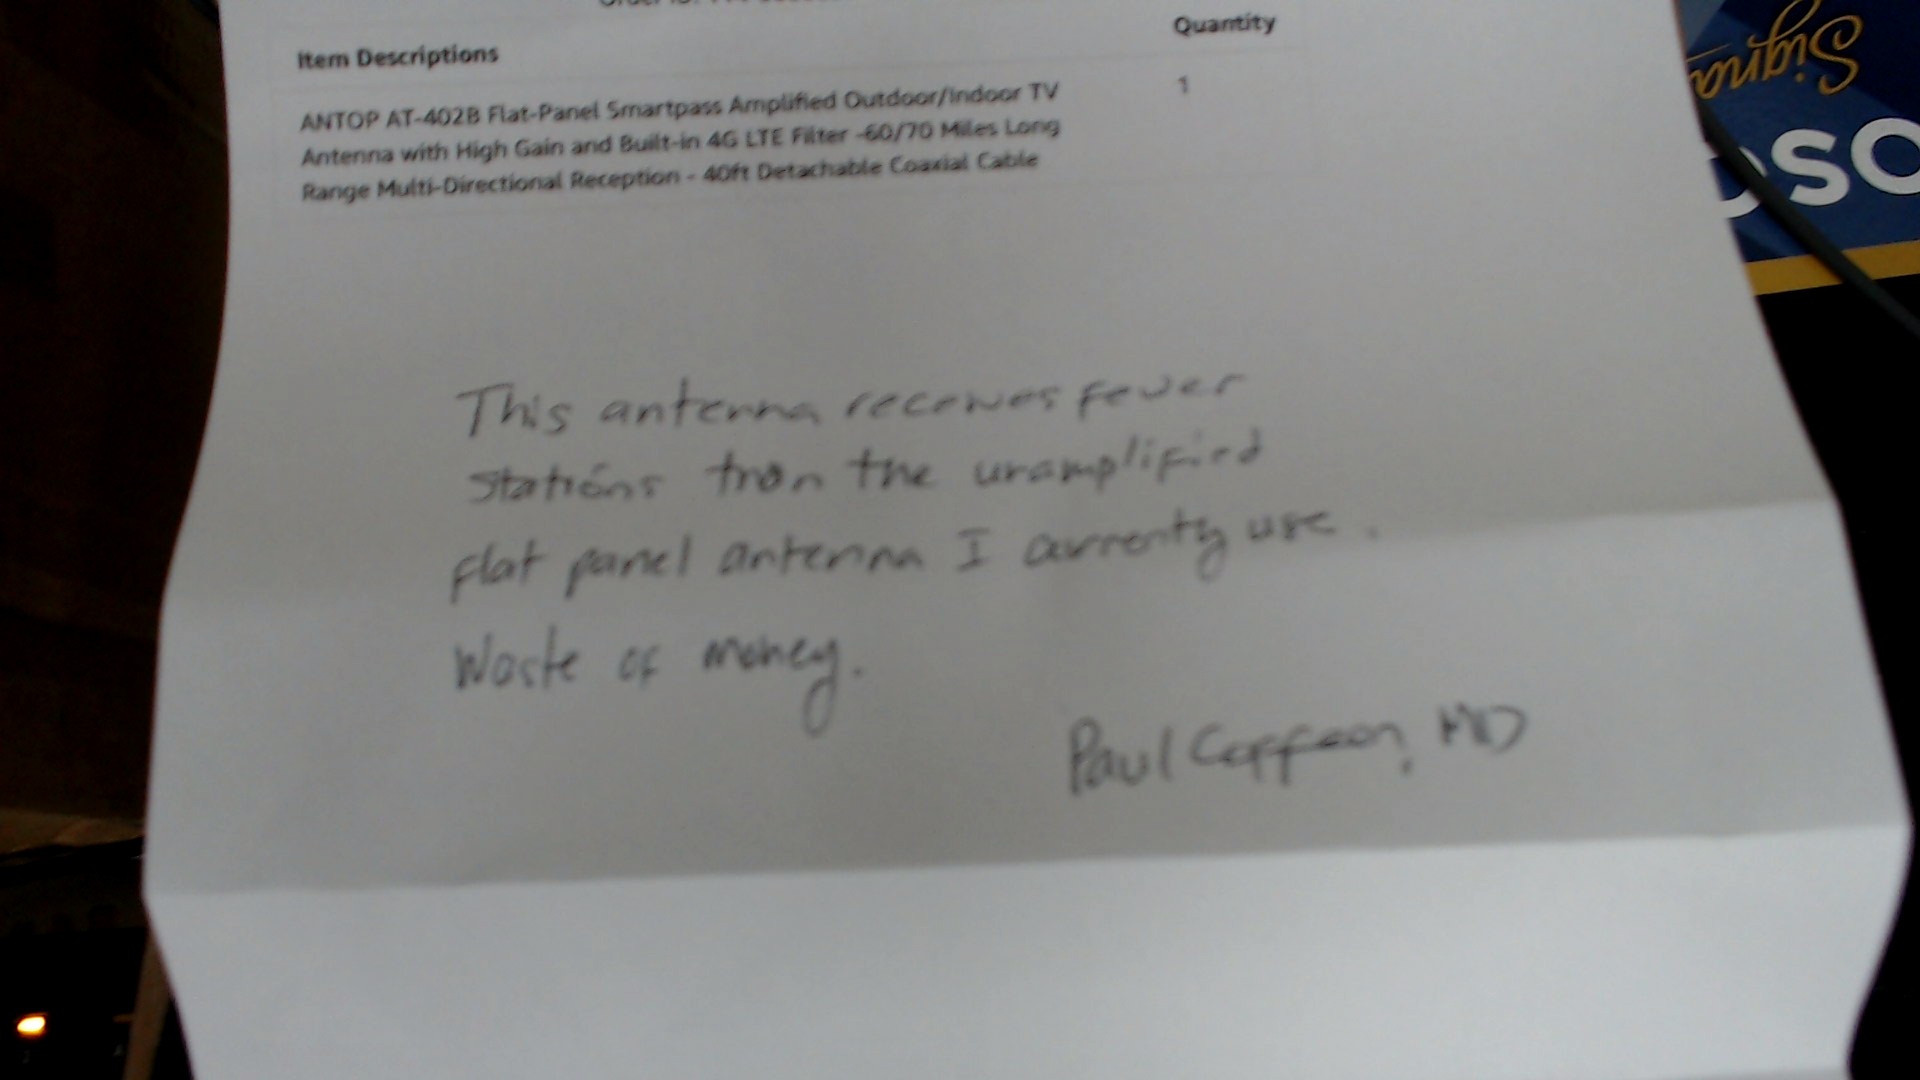 Item Descriptions
Quantity
ANTOP AT-402B Flat-Panel Smartpass Amplified Outdoor/Indoor TV
1
Antenna with High Gain and Built-in 4G LTE Filter -60/70 Miles Long
Range Multi-Directional Reception - 40ft Detachable Coaxial Cable
This antenna receives fewer
stations than the unamplified
flat panel antenna I currently use.
Waste of money.
Paul MD
Signa